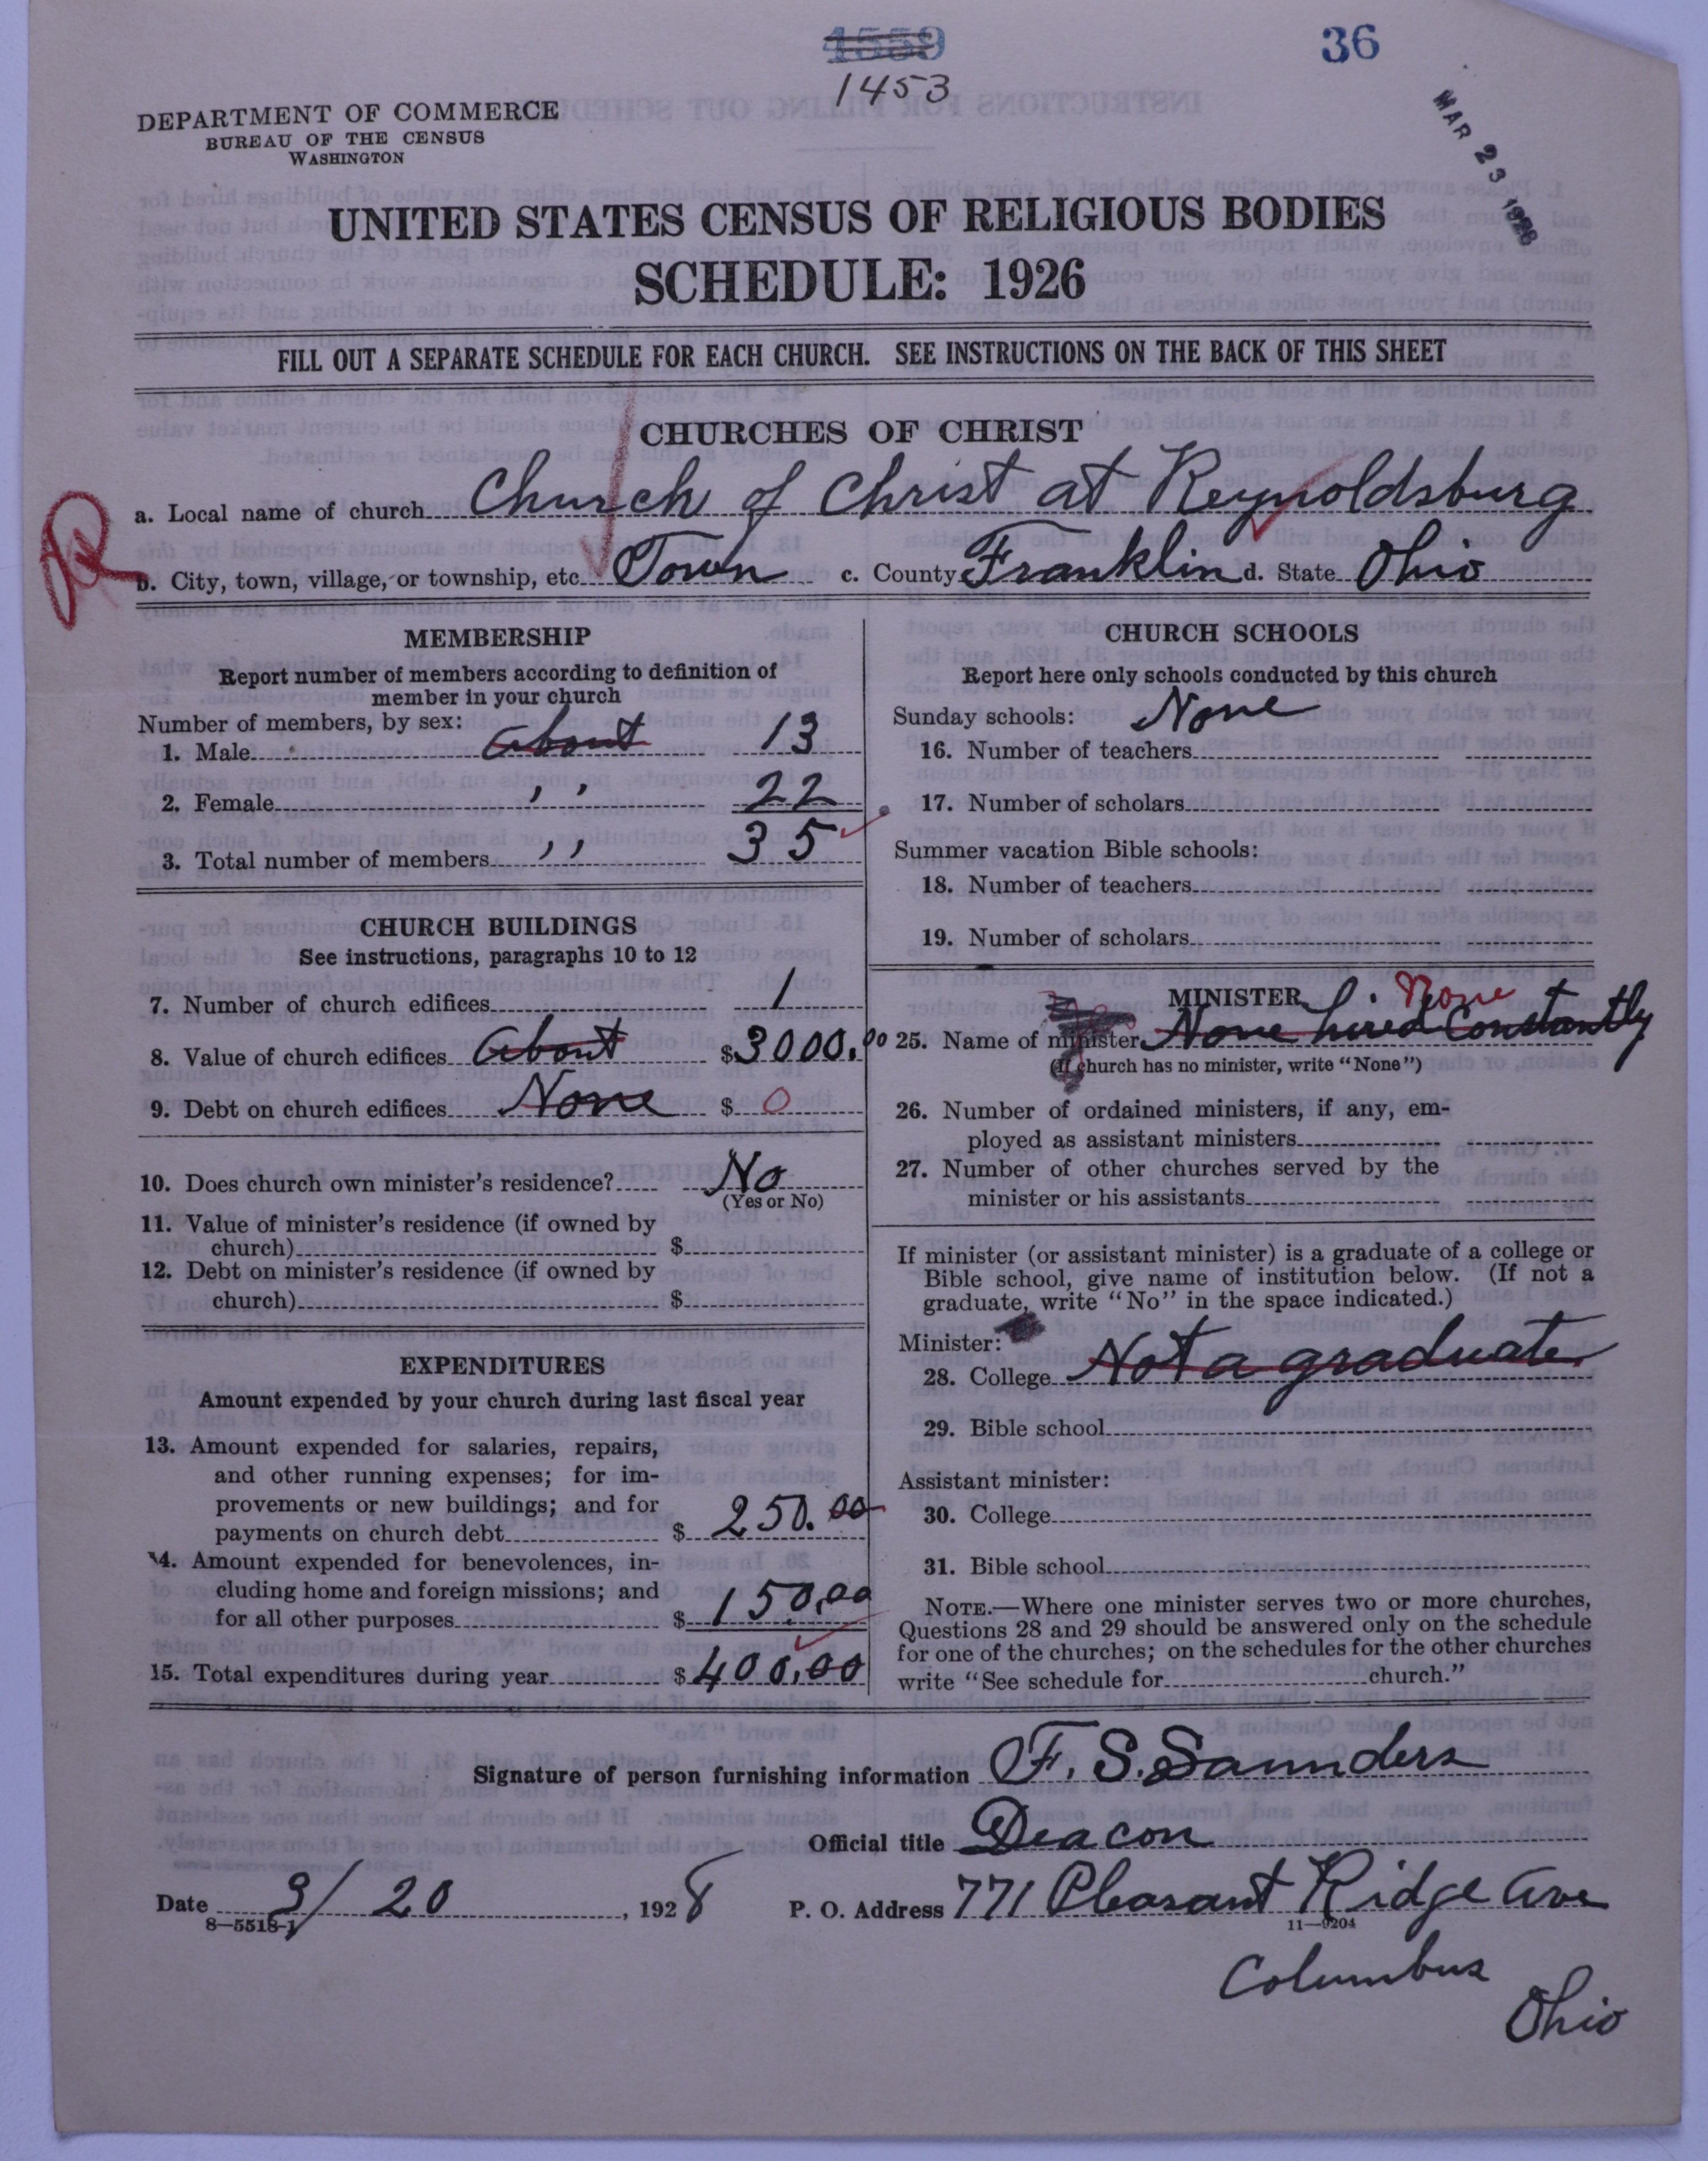 4559
36
1453
MAR 23 1928
DEPARTMENT OF COMMERCE
BUREAU OF THE CENSUS
WASHINGTON
UNITED STATES CENSUS OF RELIGIOUS BODIES
SCHEDULE: 1926
FILL OUT A SEPARATE SCHEDULE FOR EACH CHURCH. SEE INSTRUCTIONS ON THE BACK OF THIS SHEET
CHURCHES OF CHRIST
R
a. Local name of church Church of Christ at Reynoldsburg
b. City, town, village, or township, etc. Town c. County Franklin d. State Ohio
MEMBERSHIP
Report number of members according to definition of
member in your church
Number of members, by sex:
1. Male about 13
2. Female ,, 22
3. Total number of members ,, 35
CHURCH BUILDINGS
See instructions, paragraphs 10 to 12
7. Number of church edifices 1
8. Value of church edifices about $3000.00
9. Debt on church edifices None $ 0
10. Does church own minister's residence? No
(Yes or No)
11. Value of minister's residence (if owned by
church) $
12. Debt on minister's residence (if owned by
church) $
EXPENDITURES
Amount expended by your church during last fiscal year
13. Amount expended for salaries, repairs,
and other running expenses; for im-
provements or new buildings; and for
payments on church debt $ 250.00
14. Amount expended for benevolences, in-
cluding home and foreign missions; and
for all other purposes $ 150.00
15. Total expenditures during year $ 400.00
CHURCH SCHOOLS
Report here only schools conducted by this church
Sunday schools: None
16. Number of teachers
17. Number of scholars
Summer vacation Bible schools:
18. Number of teachers
19. Number of scholars
MINISTER None
25. Name of minister None hired Constantly
(If church has no minister, write "None")
26. Number of ordained ministers, if any, em-
ployed as assistant ministers
27. Number of other churches served by the
minister or his assistants
If minister (or assistant minister) is a graduate of a college or
Bible school, give name of institution below. (If not a
graduate, write "No" in the space indicated.)
Minister:
28. College Not a graduate.
29. Bible school
Assistant minister:
30. College
31. Bible school
NOTE.—Where one minister serves two or more churches,
Questions 28 and 29 should be answered only on the schedule
for one of the churches; on the schedules for the other churches
write "See schedule for church."
Signature of person furnishing information F. S. Saunders
Official title Deacon
Date 3/20, 1928 P. O. Address 771 Pleasant Ridge Ave
8—5518-1
11—9204
Columbus
Ohio